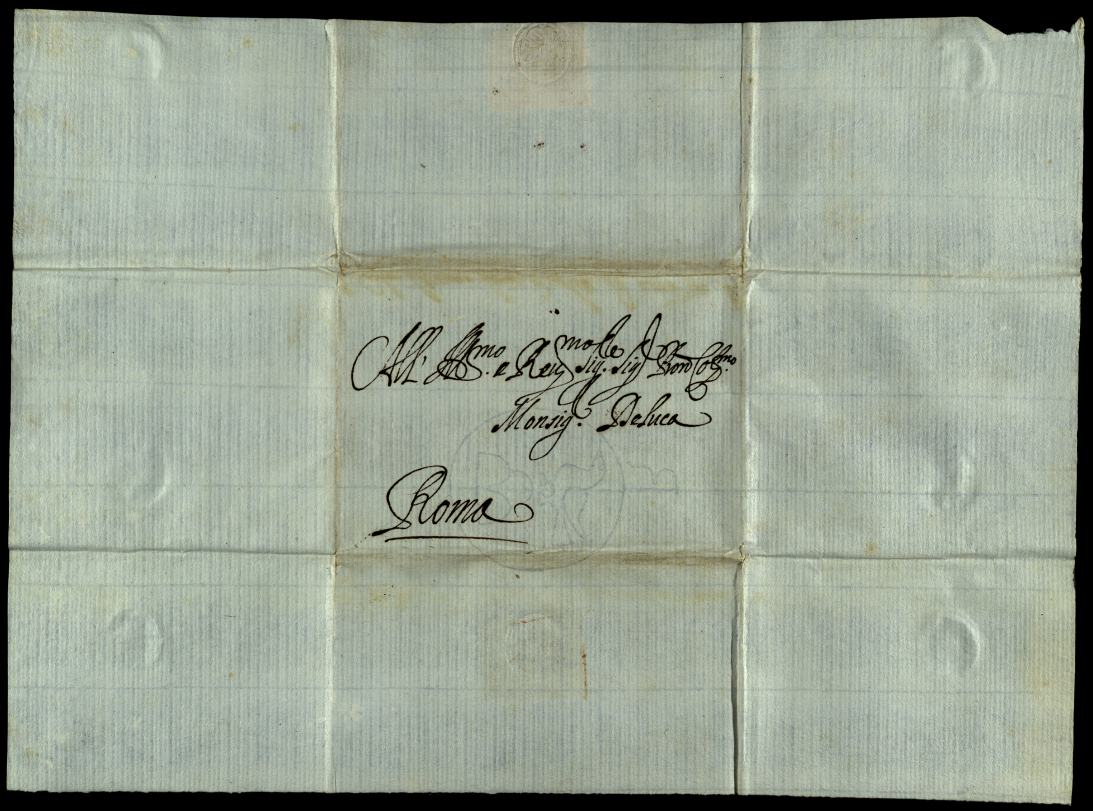 All' Ill.mo e Reu.mo Sig. Sig. Pron Col.mo
Monsig.r DeLuca
Roma